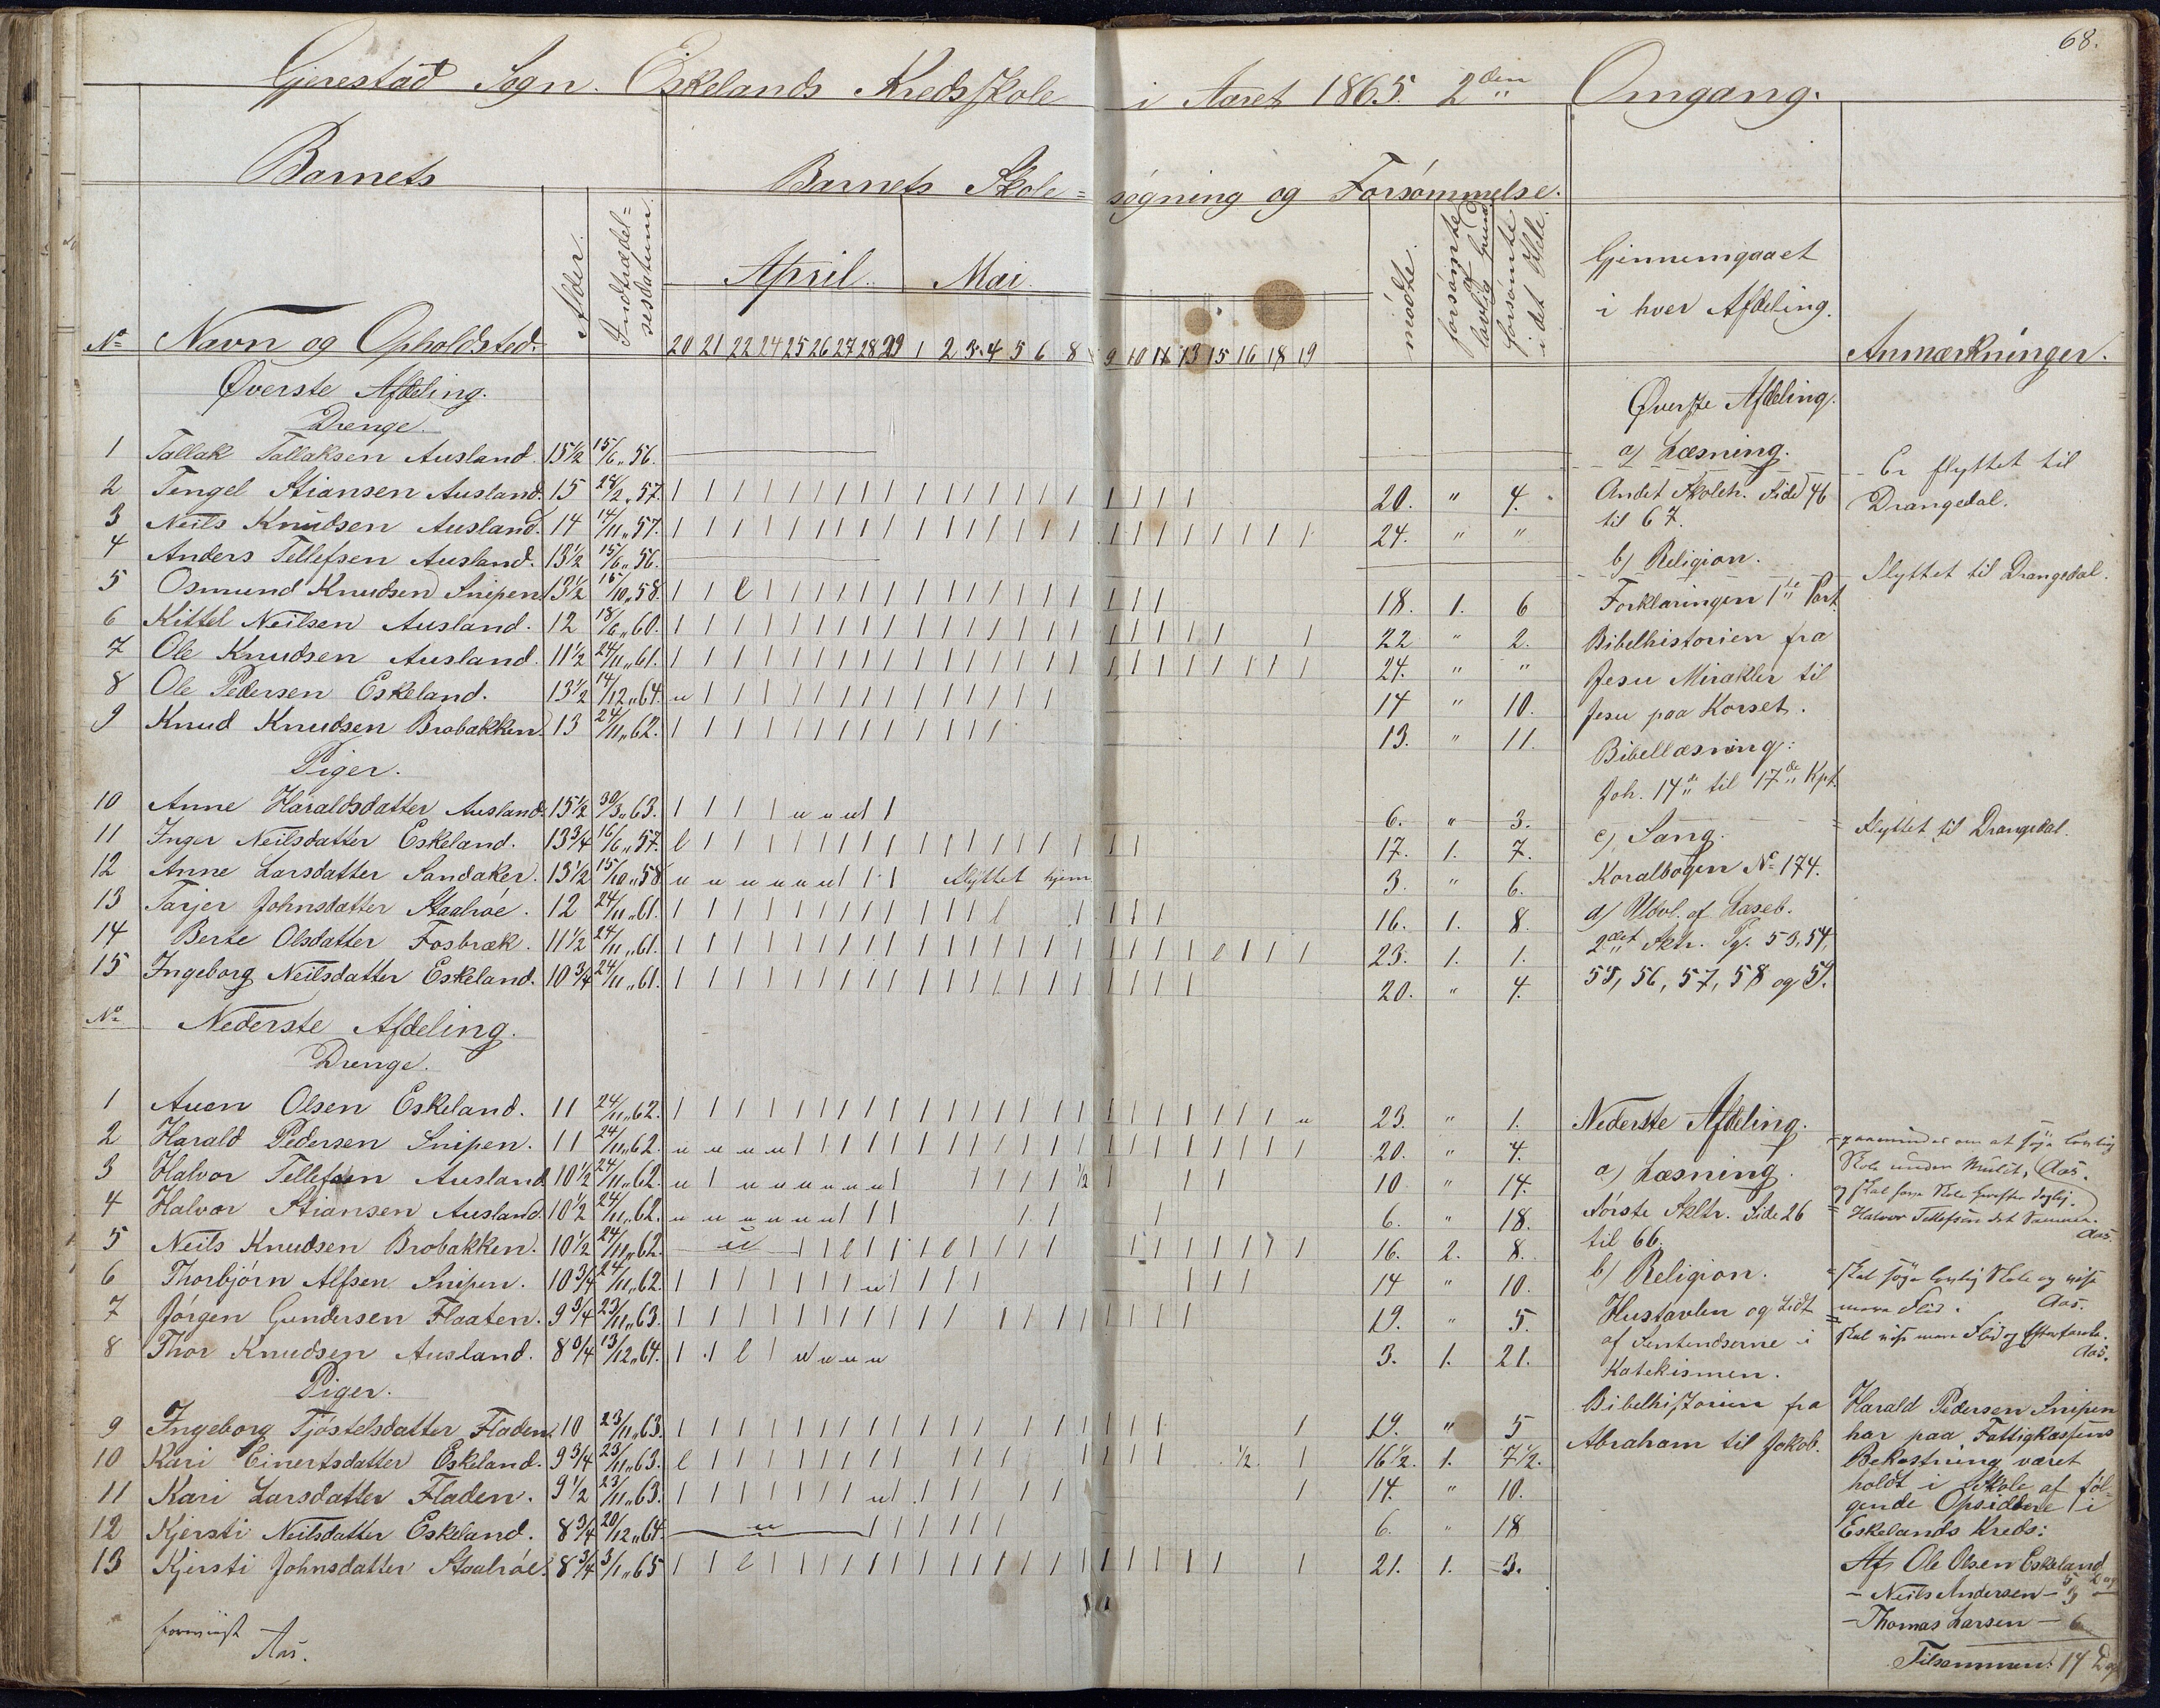 68.
Gjerestad Sogn. Eskelands Kredsskole i Aaret 1865. 2den Omgang.
Barnets
Barnets Skole= søgning og Forsømmelse.
No Navn og Opholdsted.
Alder.
Indtrædel=
sesdatum.
April. Mai.
20 21 22 24 25 26 27 28 29 1 2 3 4 5 6 8 9 10 11 13 15 16 18 19
mødte.
forsømte af lovlig Grund
forsømte i det Hele.
Gjennemgaaet
i hver Afdeling.
Anmærkninger.
Øverste Afdeling.
Drenge.
1 Tallak Tallaksen Ausland. 15½ 15/6 „ 56.
2 Tengel Stiansen Ausland. 15 28/2 „ 57. 20. " 4.
3 Neils Knudsen Ausland. 14 14/11 „ 57. 24. " "
4 Anders Tellefsen Ausland. 13½ 15/6 „ 56.
5 Osmund Knudsen Snipen 13½ 15/10 „ 58. 18. 1. 6
6 Kittel Neilsen Ausland. 12 18/6 „ 60. 22 " 2.
7 Ole Knudsen Ausland. 11½ 24/11 „ 61. 24. " "
8 Ole Pedersen Eskeland. 13½ 14/12 „ 64. 14 " 10.
9 Knud Knudsen Brobakken. 13 24/11 „ 62. 13. " 11.
Piger.
10 Anne Haraldsdatter Ausland. 15½ 30/3 „ 63. 6. " 3.
11 Inger Neilsdatter Eskeland. 13¾ 16/6 „ 57. 17. 1. 7.
12 Anne Larsdatter Sandaker. 13½ 15/10 „ 58 flyttet hjem 3. " 6.
13 Tarjer Johnsdatter Staalröe. 12 24/11 „ 61. 16. 1. 8.
14 Berte Olsdatter Fosbræk. 11½ 24/11 „ 61. 23. 1. 1.
15 Ingeborg Neilsdatter Eskeland. 10¾ 24/11 „ 61. 20. " 4.
No Nederste Afdeling.
Drenge.
1 Auen Olsen Eskeland. 11 24/11 „ 62. 23. " 1.
2 Harald Pedersen Snipen. 11 24/11 „ 62. 20. " 4.
3 Halvor Tellefsen Ausland 10½ 24/11 „ 62. 10 " 14.
4 Halvor Stiansen Ausland 10½ 24/11 „ 62. 6. " 18.
5 Neils Knudsen Brobakken. 10½ 24/11 „ 62. 16. 2. 8.
6 Thorbjörn Alfsen Snipen. 10¾ 24/11 „ 62. 14 " 10.
7 Jörgen Gundersen Flaaten. 9¾ 23/11 „ 63. 19. " 5.
8 Thor Knudsen Ausland. 8¾ 13/12 „ 64. 3. 1. 21.
Piger.
9 Ingeborg Tjöstelsdatter Fladen. 10 23/11 „ 63. 19. " 5
10 Kari Einertsdatter Eskeland. 9¾ 23/11 „ 63. 16½. 1. 7½.
11 Kari Larsdatter Fladen. 9½ 23/11 „ 63. 14. " 10.
12 Kjersti Neilsdatter Eskeland. 8¾ 20/12 „ 64 6. " 18
13 Kjersti Johnsdatter Staalröe. 8¾ 3/1 „ 65 21. 1. 3.
Aas.
Øverste Afdeling.
a) Læsning.
Andet Skoleh. Side 46
til 67.
b) Religion.
Forklaringen 1ste Part.
Bibelhistorien fra
Jesu Mirakler til
Jesu paa Korset.
Bibellæsning:
Joh. 14de til 17de Kpt.
c) Sang.
Koralbogen No 174.
d) Udvl. af Læseb.
2det Sktr. Pg. 53, 54,
55, 56, 57, 58 og 59.
Nederste Afdeling.
a) Læsning.
Første Skltr. Side 26
til 66.
b) Religion.
Hustavlen og Lidt
af Sentendserne i
Katekismen.
Bibelhistorien fra
Abraham til Jakob.
Er flyttet til
Drangedal.
Flyttet til Drangedal.
Flyttet til Drangedal.
paamindes om at søge lovlig
Skole under Mulct, Aas.
Halvor Tellefsen det Samme.
Aas.
skal søge lovlig Skole og vise
mere Flid. Aas.
skal vise mere Flid og
Aas.
Harald Pedersen Snipen
har paa Fattigkassens
Bekostning været
holdt i Skole af föl=
gende Opsiddere i
Eskelands Kreds:
Af Ole Olsen Eskeland
5 Dag
– Neils Andersen – 3 –
– Thomas Larsen – 6
Tilsammen: 14 Dag